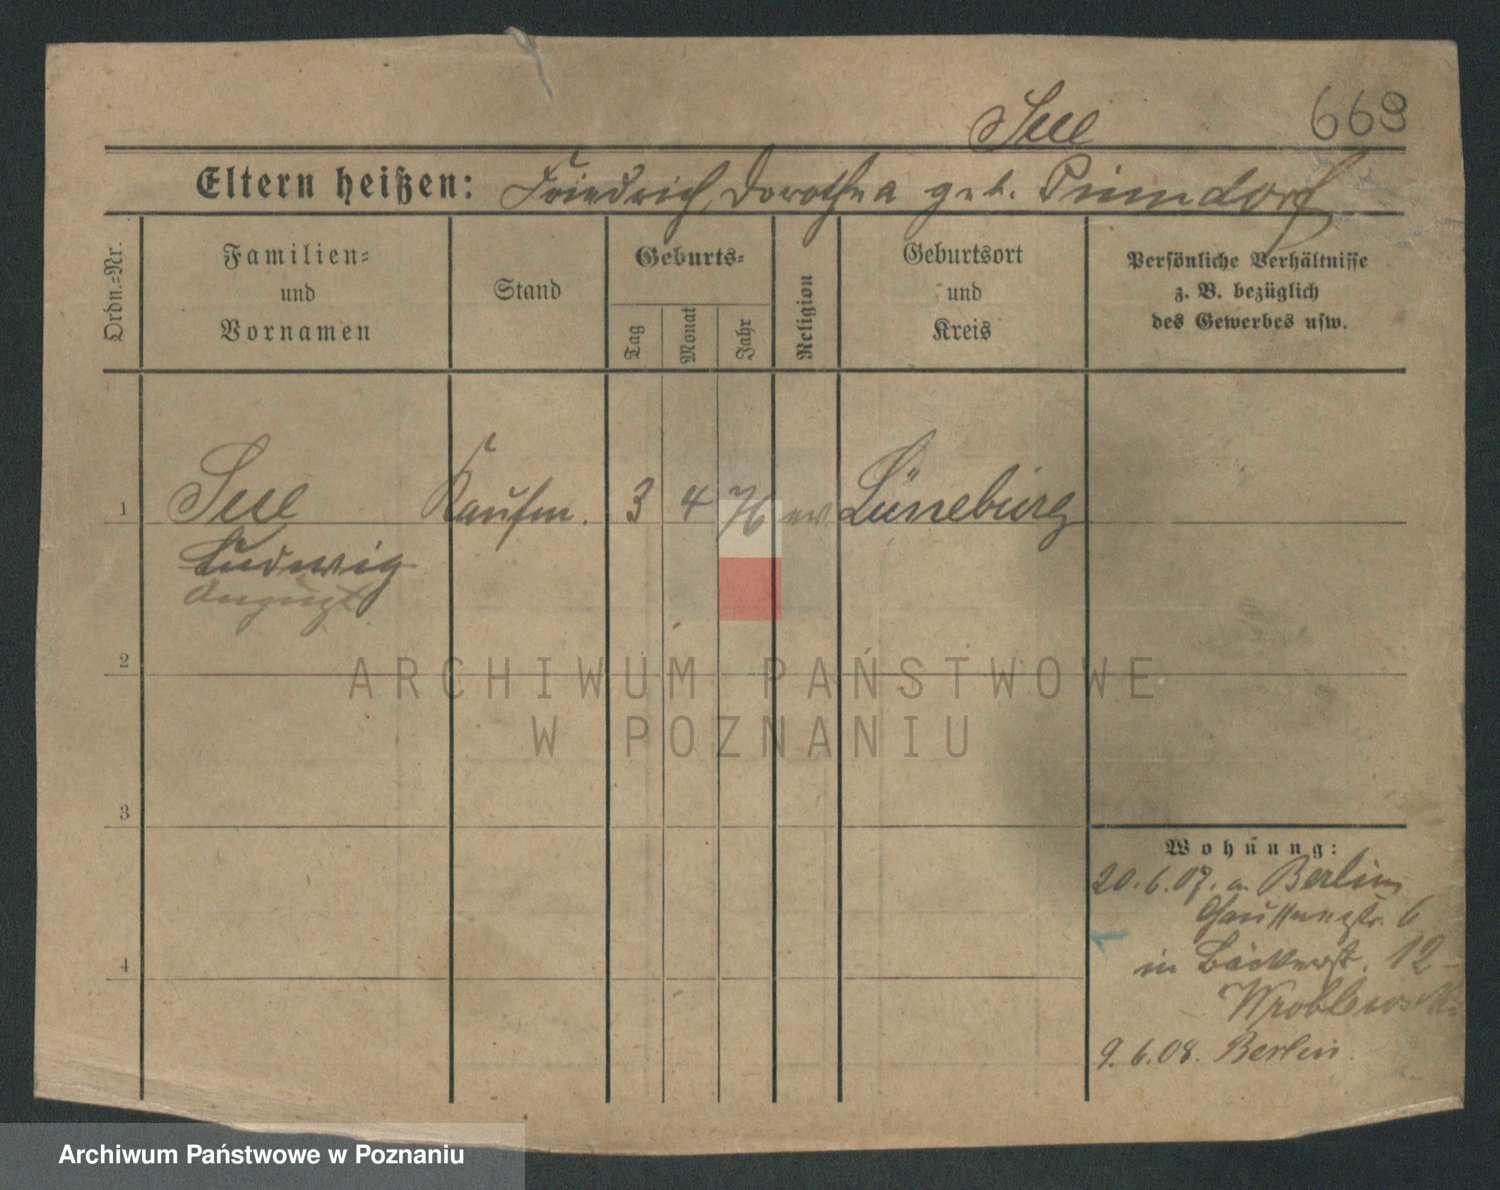 668
Eltern heißen: Friedrich, Dorothea geb.
Ordn.-Nr.
Familien-
und
Vornamen
Stand
Geburts-
Tag
Monat
Jahr
Religion
Geburtsort
und
Kreis
Persönliche Verhältnisse
z. B. bezüglich
des Gewerbes usw.
1
Kaufm. 3 4 76 ev Lüneburg
Ludwig
August
2
3
4
Wohnung:
20.6.07. a. Berlin
6
in Bäckerst. 12
Wroblewski
9.6.08. Berlin
ARCHIWUM PAŃSTWOWE
W POZNANIU
Archiwum Państwowe w Poznaniu